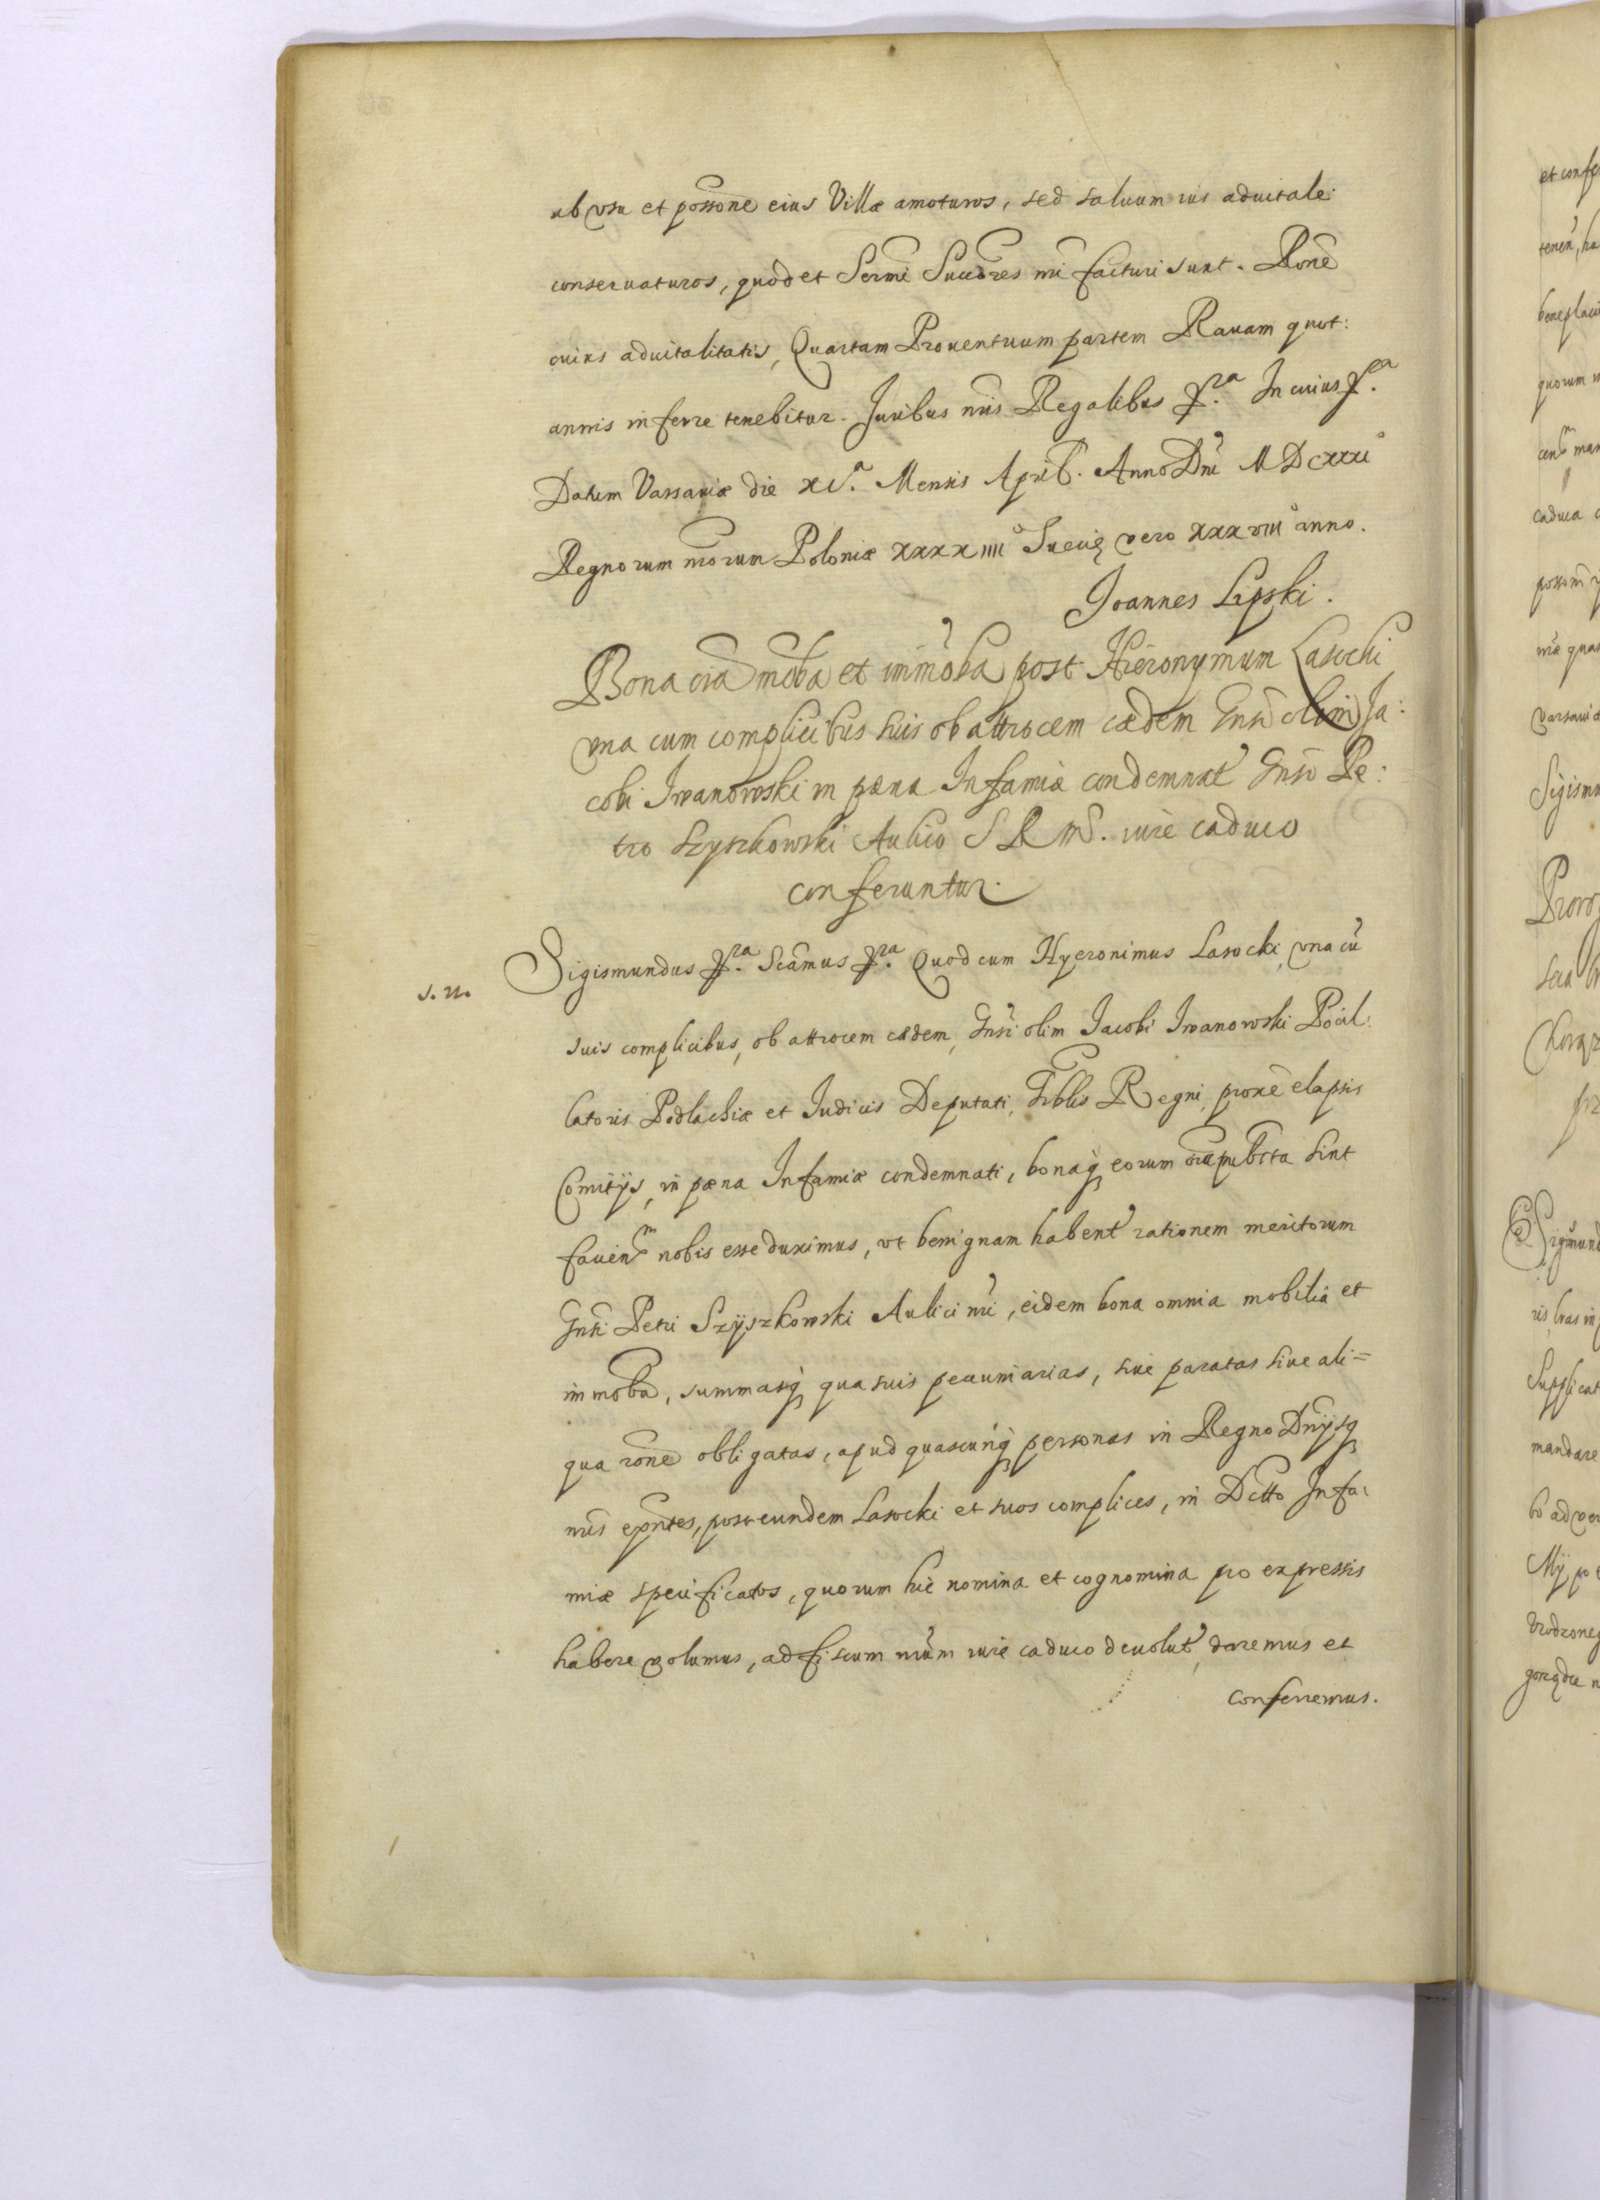 ab vsu et possone eius Villæ amoturos, sed saluum ius aduitale
conseruaturos, quod et Sermi Succres nri facturi sunt. Rone
cuius aduitalitatis, Quartam Prouentuum partem Rauam quot:
annis inferre tenebitur. Juribus nris Regalibus &ra In cuius &ea.
Datum Varsauiæ die xv.a Mensis April. Anno Dni MDCxxxi
Regnorum nrorum Poloniæ xxxxiiiio Suecię vero xxxviiio anno.
Joannes Lipski.
Bona oia moba et immoba post Hieronymum Lasocki
vna cum complicibus suis ob attrocem cædem Gnsi olim Ja:
cobi Iwanowski in pæna Infamiæ condemnat Gnso Pe:
tro Szyszkowski Aulico S R M. iure caduco
conferuntur.
Sigismundus &ra. Scamus &ra. Quod cum Hyeronimus Lasocki, vna cu
s. n.
suis complicibus, ob attrocem cædem, Gnsi olim Jacobi Iwanowski Pocil:
latoris Podlachiæ et Judicis Deputati, Trblis Regni, proxe elapsis
Comitijs, in pæna Infamiæ condemnati, bonaq eorum oia publcta sint
faciend nobis esse duximus, vt benignam habent rationem meritorum
Gnsi Petri Szyszkowski Aulici nri, eidem bona omnia mobilia et
immoba, summasq quasuis pecuniarias, siue paratas siue ali=
qua rone obligatas, apud quascunq personas in Regno Dnijsq
nris expntes, post eundem Lasocki et suos complices, in Dctto Infa:
miæ specificatos, quorum hic nomina et cognomina pro expressis
habere volumus, ad fiscum nrum iure caduco deuolut, daremus et
conferremus.
et confer
beneplaci
quorum
caduca
Varsauiæ
Sigism
Supplicat
mandare
bo ad